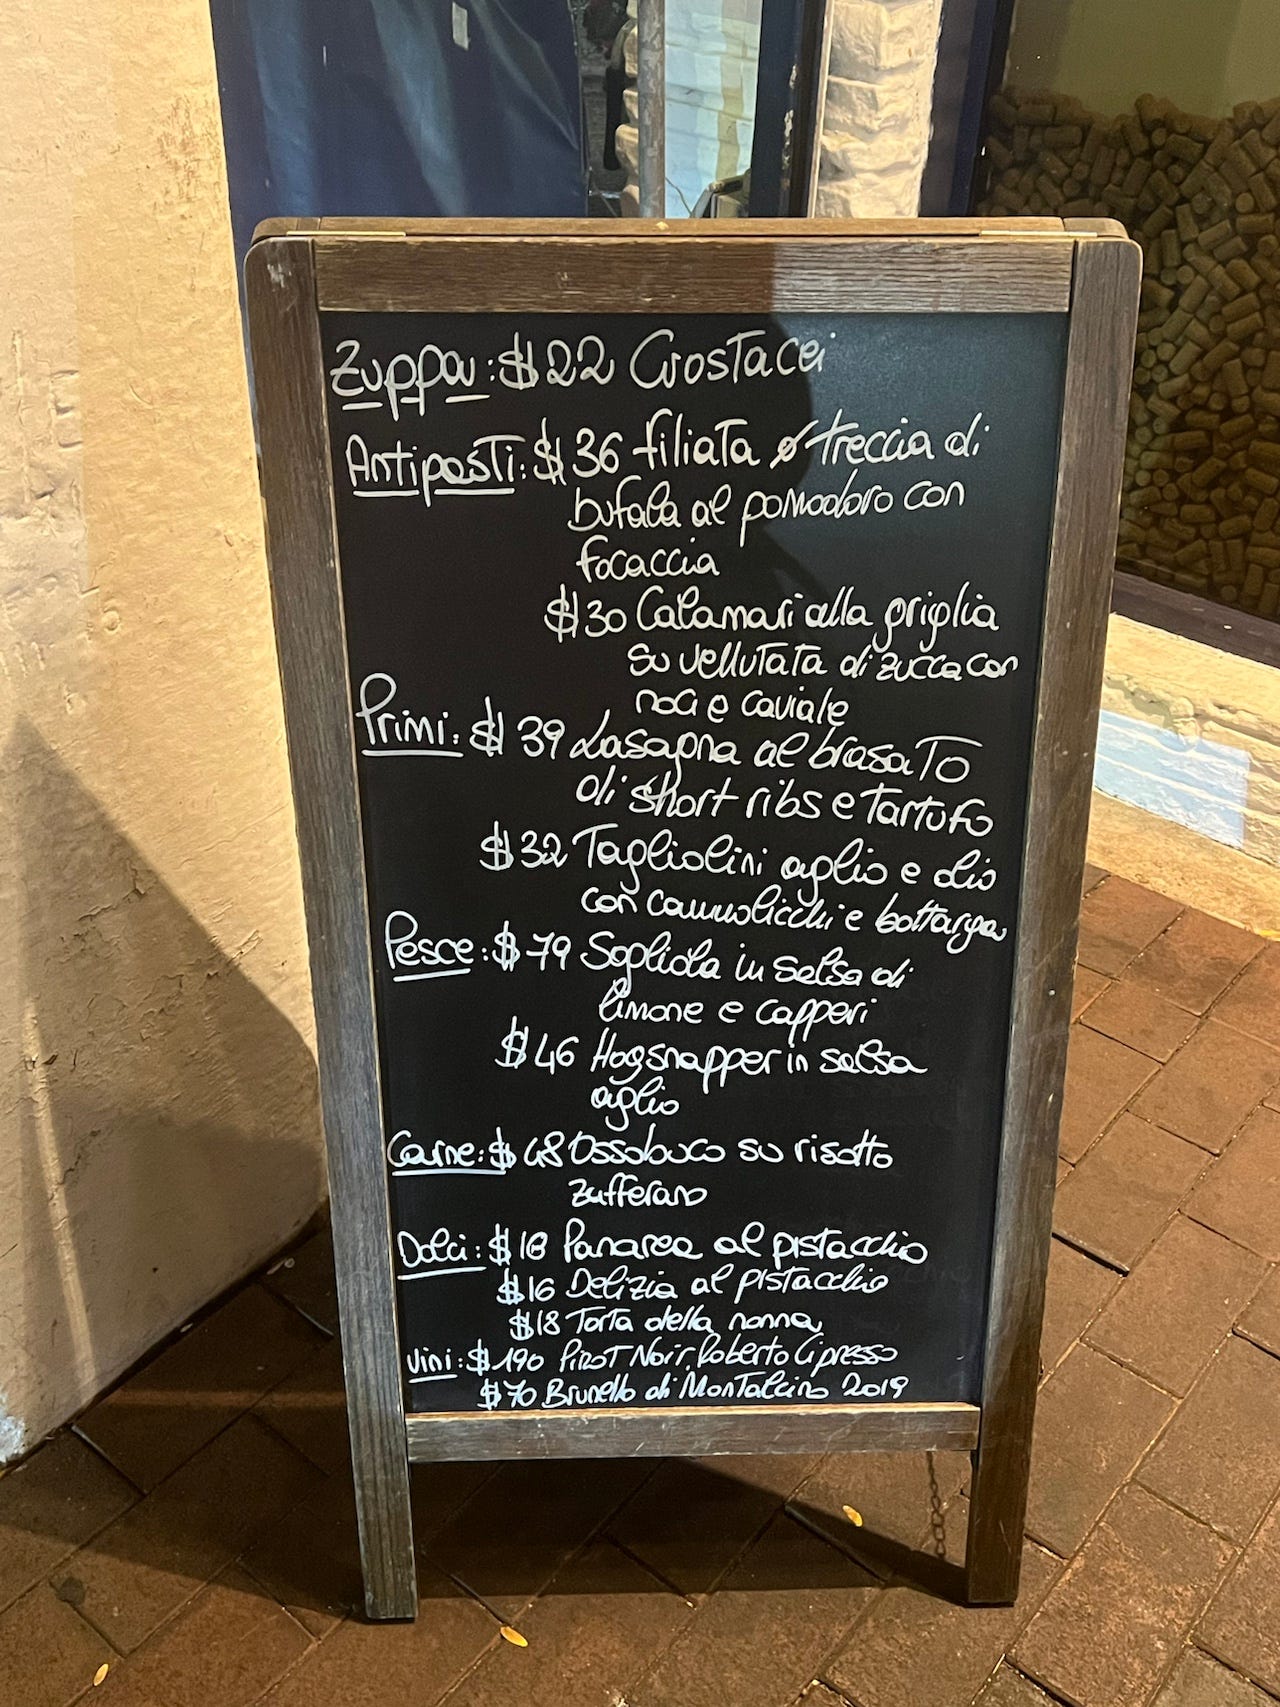 Zuppa: $22 Crostacei
Antipasti: $36 filiata o treccia di
bufala al pomodoro con
focaccia
$30 Calamari alla griglia
su vellutata di zucca con
noci e caviale
Primi: $39 Lasagna al brasato
di short ribs e tartufo
$32 Tagliolini aglio e olio
con cannolicchi e bottarga
Pesce: $79 Sogliola in salsa di
limone e capperi
$46 Hogsnapper in salsa
aglio
Carne: $48 Ossobuco su risotto
zufferano
Dolci: $18 Panarea al pistacchio
$16 Delizia al pistacchio
$18 Torta della nonna
Vini: $190 Pinot Noir, Roberto Cipresso
$70 Brunello di Montalcino 2019